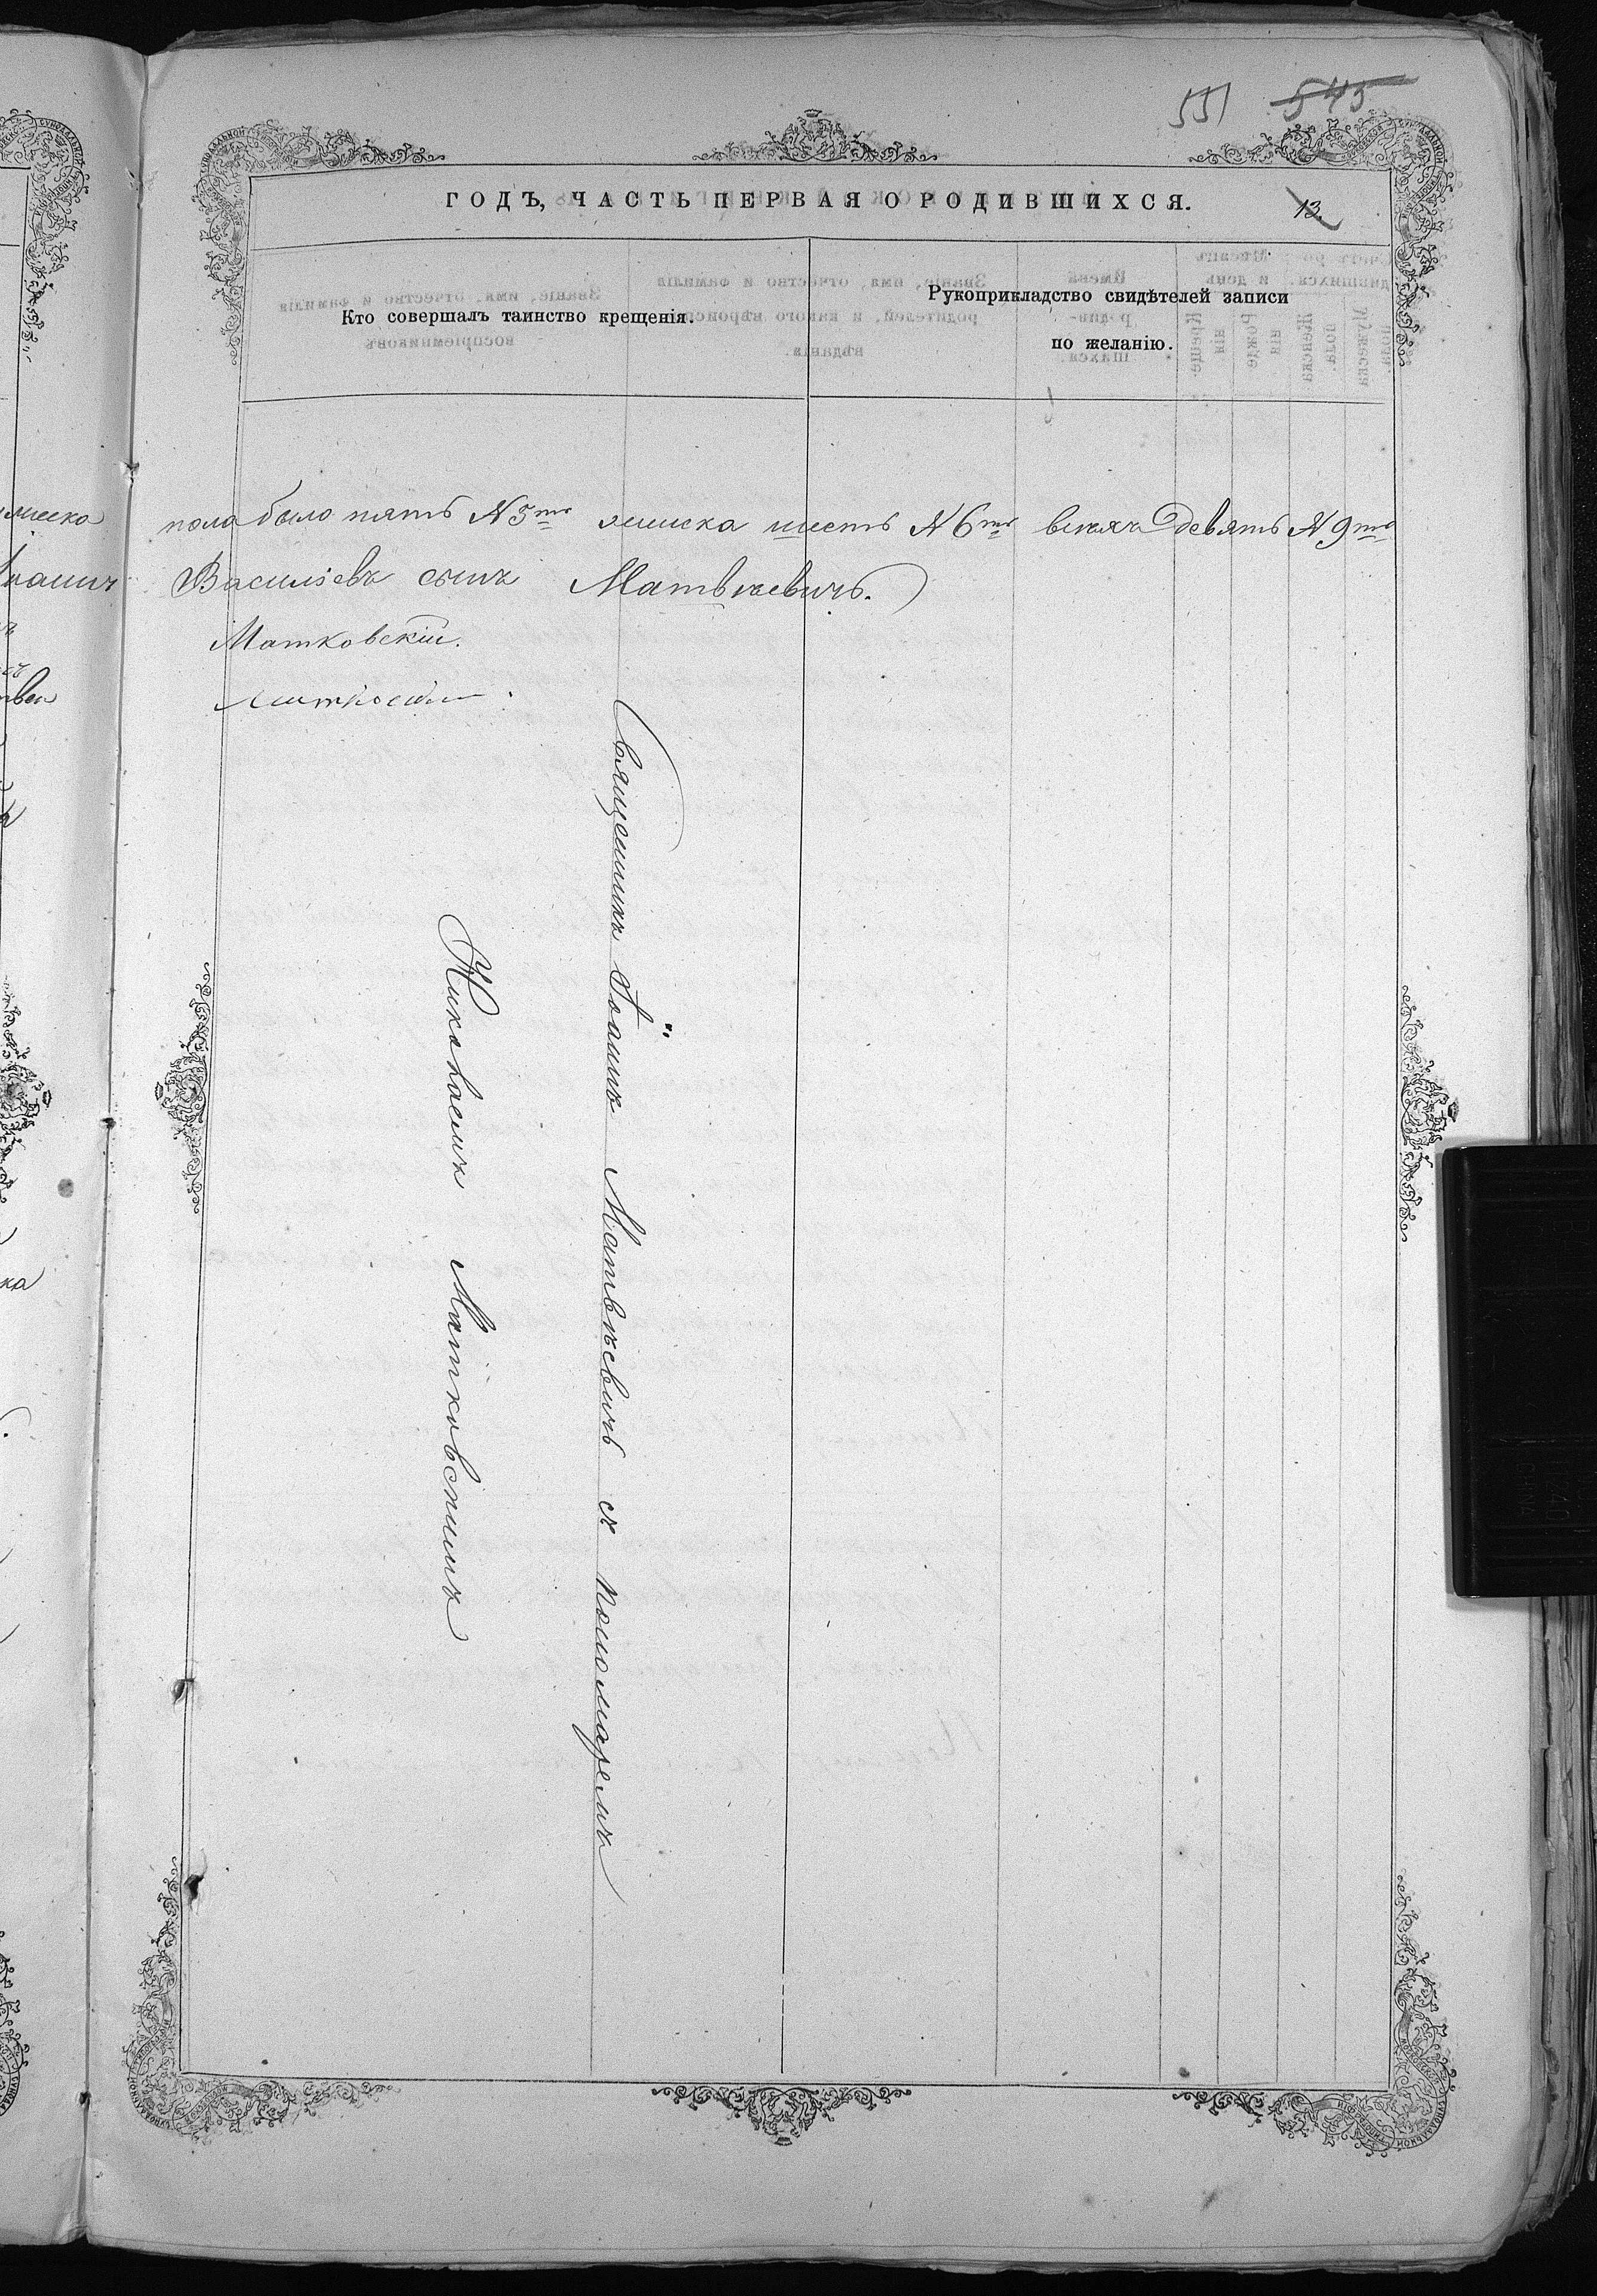 551 545
ГОДЪ, ЧАСТЬ ПЕРВАЯ О РОДИВШИХСЯ.
13.
Кто совершалъ таинство крещенія.
Рукоприкладство свидѣтелей записи
по желанію.
пола было пять N 5го женска шесть N 6го всѣхъ девять N 9го
Василіевъ сынъ Матвѣевичъ.
Матковскій.
Священникъ Іоаннъ Матвѣевичъ съ пономаремъ
Николаемъ Матковскимъ